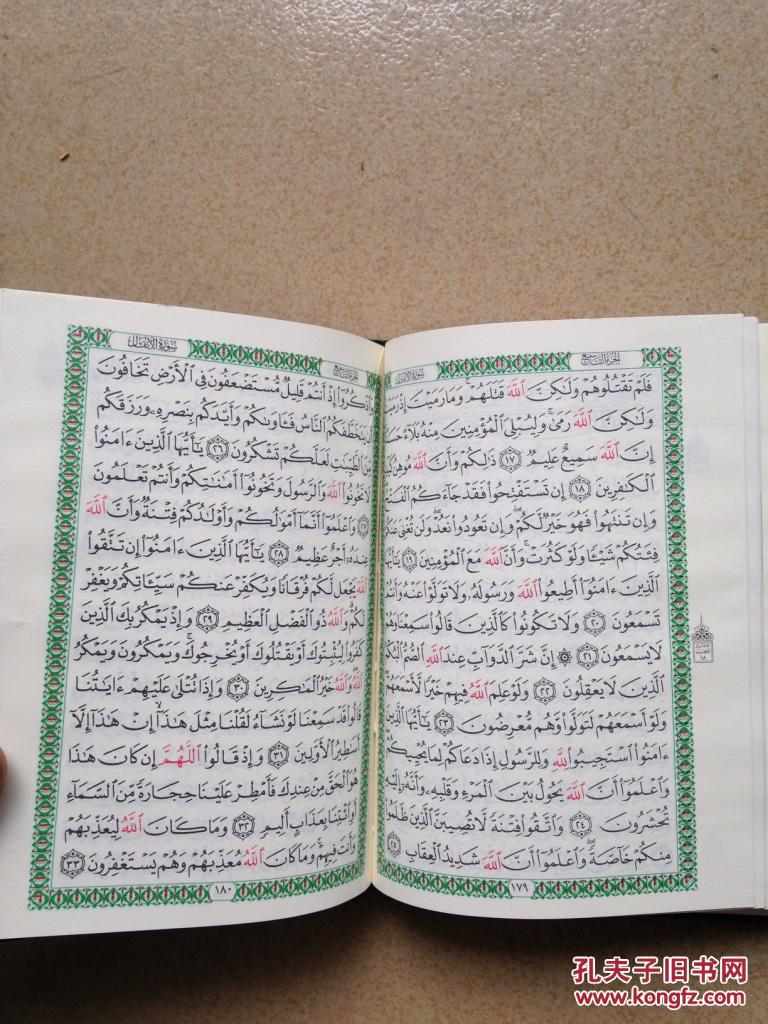 سورة الأنفال
الجزء التاسع
فَلَمْ تَقْتُلُوهُمْ وَلَٰكِنَّ اللَّهَ قَتَلَهُمْ وَمَا رَمَيْتَ إِذْ رَمَيْتَ
وَلَٰكِنَّ اللَّهَ رَمَىٰ وَلِيُبْلِيَ الْمُؤْمِنِينَ مِنْهُ بَلَاءً
إِنَّ اللَّهَ سَمِيعٌ عَلِيمٌ ١٧ ذَٰلِكُمْ وَأَنَّ اللَّهَ مُوهِنُ
الْكَافِرِينَ ١٨ إِن تَسْتَفْتِحُوا فَقَدْ جَاءَكُمُ
وَإِن تَنتَهُوا فَهُوَ خَيْرٌ لَّكُمْ وَإِن تَعُودُوا نَعُدْ وَلَن تُغْنِيَ
فِئَتُكُمْ شَيْئًا وَلَوْ كَثُرَتْ وَأَنَّ اللَّهَ مَعَ الْمُؤْمِنِينَ ١٩ يَا أَيُّهَا
الَّذِينَ آمَنُوا أَطِيعُوا اللَّهَ وَرَسُولَهُ وَلَا تَوَلَّوْا عَنْهُ وَأَنتُمْ
تَسْمَعُونَ ٢٠ وَلَا تَكُونُوا كَالَّذِينَ قَالُوا سَمِعْنَا وَهُمْ
لَا يَسْمَعُونَ ٢١ ۞ إِنَّ شَرَّ الدَّوَابِّ عِندَ اللَّهِ الصُّمُّ
الَّذِينَ لَا يَعْقِلُونَ ٢٢ وَلَوْ عَلِمَ اللَّهُ فِيهِمْ خَيْرًا لَّأَسْمَعَهُمْ
وَلَوْ أَسْمَعَهُمْ لَتَوَلَّوا وَّهُم مُّعْرِضُونَ ٢٣ يَا أَيُّهَا الَّذِينَ
آمَنُوا اسْتَجِيبُوا لِلَّهِ وَلِلرَّسُولِ إِذَا دَعَاكُمْ لِمَا يُحْيِيكُمْ
وَاعْلَمُوا أَنَّ اللَّهَ يَحُولُ بَيْنَ الْمَرْءِ وَقَلْبِهِ وَأَنَّهُ إِلَيْهِ
تُحْشَرُونَ ٢٤ وَاتَّقُوا فِتْنَةً لَّا تُصِيبَنَّ الَّذِينَ ظَلَمُوا
مِنكُمْ خَاصَّةً وَاعْلَمُوا أَنَّ اللَّهَ شَدِيدُ الْعِقَابِ ٢٥
١٧٩
سورة الأنفال
الجزء التاسع
وَاذْكُرُوا إِذْ أَنتُمْ قَلِيلٌ مُّسْتَضْعَفُونَ فِي الْأَرْضِ تَخَافُونَ
أَن يَتَخَطَّفَكُمُ النَّاسُ فَآوَاكُمْ وَأَيَّدَكُم بِنَصْرِهِ وَرَزَقَكُم
مِّنَ الطَّيِّبَاتِ لَعَلَّكُمْ تَشْكُرُونَ ٢٦ يَا أَيُّهَا الَّذِينَ آمَنُوا
لَا تَخُونُوا اللَّهَ وَالرَّسُولَ وَتَخُونُوا أَمَانَاتِكُمْ وَأَنتُمْ تَعْلَمُونَ
٢٧ وَاعْلَمُوا أَنَّمَا أَمْوَالُكُمْ وَأَوْلَادُكُمْ فِتْنَةٌ وَأَنَّ اللَّهَ
عِندَهُ أَجْرٌ عَظِيمٌ ٢٨ يَا أَيُّهَا الَّذِينَ آمَنُوا إِن تَتَّقُوا
اللَّهَ يَجْعَل لَّكُمْ فُرْقَانًا وَيُكَفِّرْ عَنكُمْ سَيِّئَاتِكُمْ وَيَغْفِرْ
لَكُمْ وَاللَّهُ ذُو الْفَضْلِ الْعَظِيمِ ٢٩ وَإِذْ يَمْكُرُ بِكَ الَّذِينَ
كَفَرُوا لِيُثْبِتُوكَ أَوْ يَقْتُلُوكَ أَوْ يُخْرِجُوكَ وَيَمْكُرُونَ وَيَمْكُرُ
اللَّهُ وَاللَّهُ خَيْرُ الْمَاكِرِينَ ٣٠ وَإِذَا تُتْلَىٰ عَلَيْهِمْ آيَاتُنَا
قَالُوا قَدْ سَمِعْنَا لَوْ نَشَاءُ لَقُلْنَا مِثْلَ هَٰذَا إِنْ هَٰذَا إِلَّا
أَسَاطِيرُ الْأَوَّلِينَ ٣١ وَإِذْ قَالُوا اللَّهُمَّ إِن كَانَ هَٰذَا
هُوَ الْحَقَّ مِنْ عِندِكَ فَأَمْطِرْ عَلَيْنَا حِجَارَةً مِّنَ السَّمَاءِ
أَوِ ائْتِنَا بِعَذَابٍ أَلِيمٍ ٣٢ وَمَا كَانَ اللَّهُ لِيُعَذِّبَهُمْ
وَأَنتَ فِيهِمْ وَمَا كَانَ اللَّهُ مُعَذِّبَهُمْ وَهُمْ يَسْتَغْفِرُونَ ٣٣
١٨٠
孔夫子旧书网
www.kongfz.com